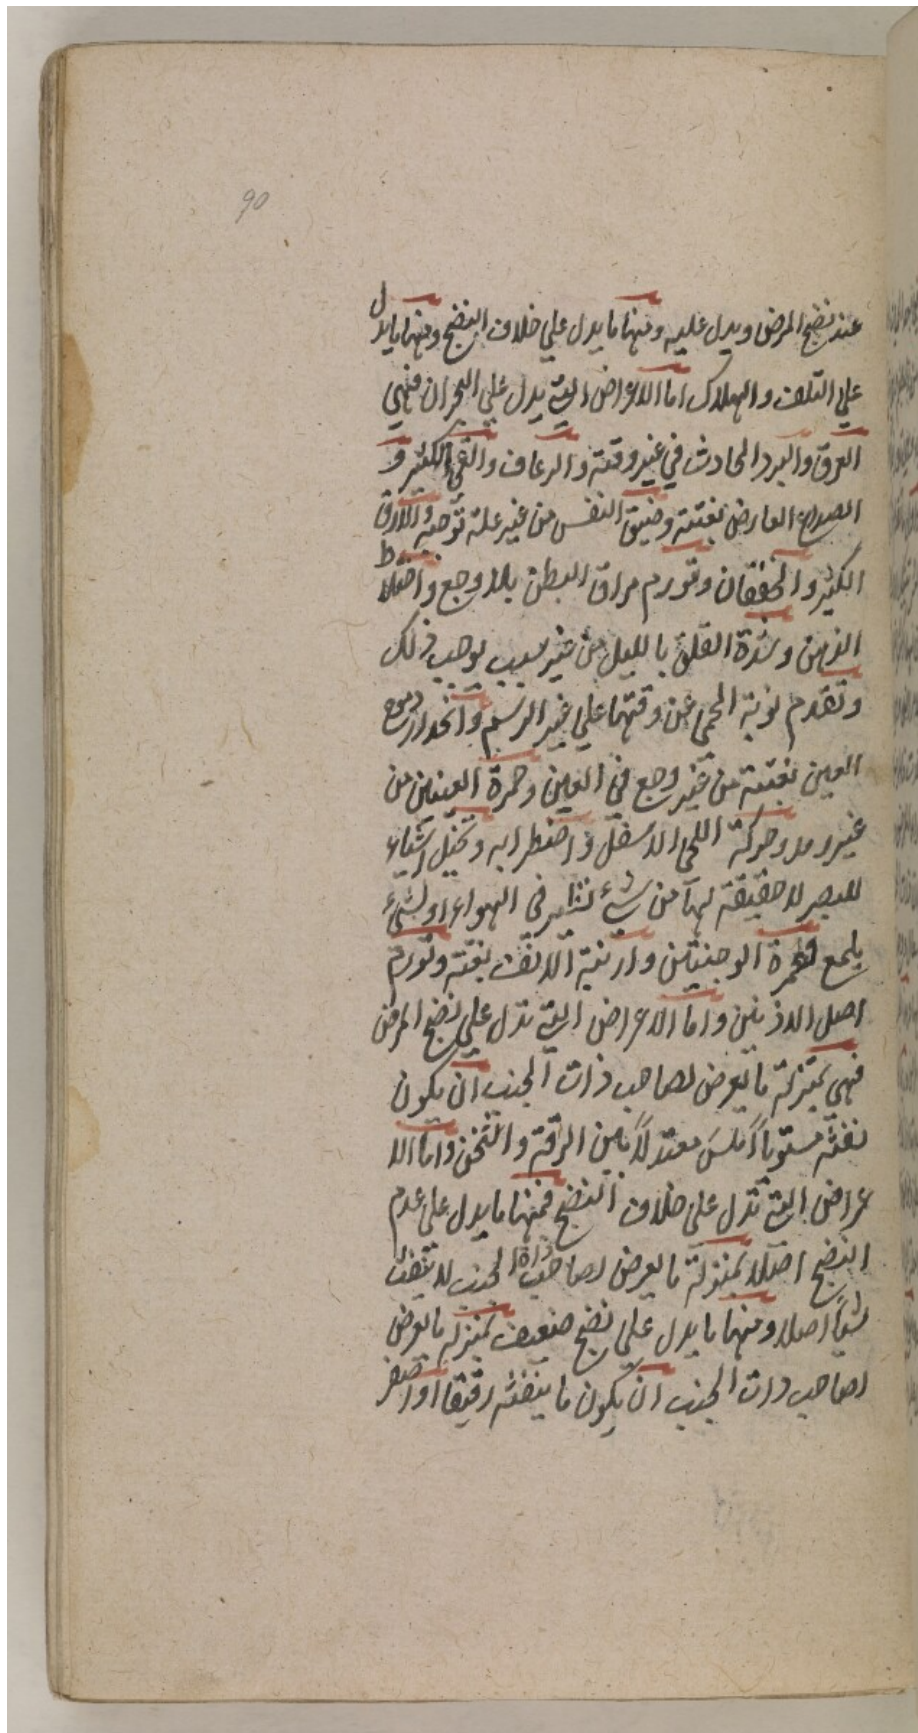 90
عند نضج المرض ويدل عليه ومنها ما يدل علي خلاف النضج ومنها ما يدل
علي التلف والهلاك اما الاعراض التي يدل علي البحران فهي
العرق والبرد الحادث في غير وقته والرعاف والقئ الكثير و
الصداع العارض بغتته وضيق النفس من غير علة توجبه والارق
الكثير والخفقان وتورم مراق البطن بلا وجع واختلاط
الذهن وشدة القلق بالليل من غير سبب يوجب ذلك
وتقدم نوبة الحمى عن وقتها علي غير الرسم وانحدار دموع
العين بغتته من غير وجع في العين وحمرة العينين من
غير رمد وحركة اللحى الاسفل واضطرابه وتخيل اشياء
للبصر لا حقيقة لها من شئ في الهواء او لشئ
يلمع وحمرة الوجنتين وارنبة الانف بغتة وتورم
اصل الاذنين واما الاعراض التي تدل علي نضج المرض
فهي بمنزلة ما يعرض لصاحب ذات الجنب ان يكون
نفثه مستويا املس معتدلا من الرقة والثخن واما الا
عراض التي تدل على خلاف النضج فمنها ما يدل على عدم
النضج اصلا بمنزلة ما يعرض لصاحب ذات الجنب لا ينفث
شيأ اصلا ومنها ما يدل علي نضج ضعيف بمنزلة ما يعرض
لصاحب ذات الجنب ان يكون ما ينفثه رقيقا او اصفر